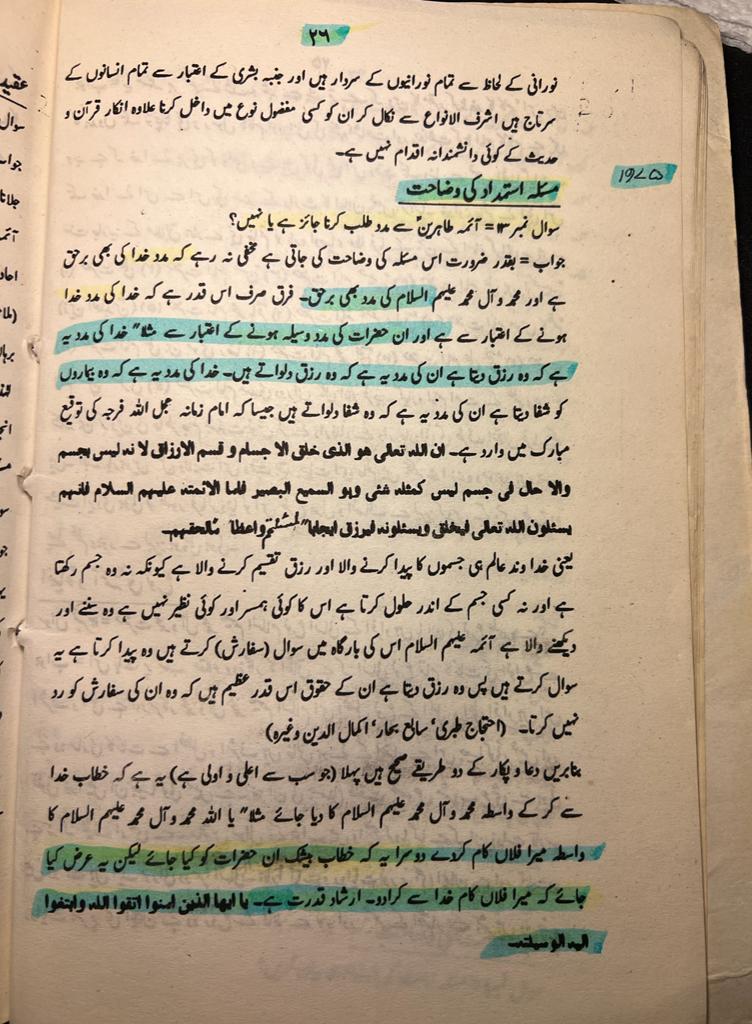 ۲۶
نورانی کے لحاظ سے تمام نورانیوں کے سردار ہیں اور جنبہ بشری کے اعتبار سے تمام انسانوں کے
سرتاج ہیں اشرف الانواع سے نکال کر ان کو کسی مفضول نوع میں داخل کرنا علاوہ انکار قرآن و
حدیث کے کوئی دانشمندانہ اقدام نہیں ہے۔
1975
مسئلہ استمداد کی وضاحت
سوال نمبر ۱۳ = آئمہ طاہرینؑ سے مدد طلب کرنا جائز ہے یا نہیں؟
جواب = بقدر ضرورت اس مسئلہ کی وضاحت کی جاتی ہے مخفی نہ رہے کہ مدد خدا کی بھی برحق
ہے اور محمد و آل محمد علیہم السلام کی مدد بھی برحق۔ فرق صرف اس قدر ہے کہ خدا کی مدد خدا
ہونے کے اعتبار سے ہے اور ان حضرات کی مدد وسیلہ ہونے کے اعتبار سے مثلا" خدا کی مدد یہ
ہے کہ وہ رزق دیتا ہے ان کی مدد یہ ہے کہ وہ رزق دلواتے ہیں۔ خدا کی مدد یہ ہے کہ وہ بیماروں
کو شفا دیتا ہے ان کی مدد یہ ہے کہ وہ شفا دلواتے ہیں جیسا کہ امام زمانہ عجل اللہ فرجہ کی توقیع
مبارک میں وارد ہے۔ ان اللہ تعالی ھو الذی خلق الا جسام و قسم الارزاق لا نہ لیس بجسم
والا حال فی جسم لیس کمثلہ شئی وہو السمیع البصیر فاما الائمتہ علیہم السلام فانہم
یسئلون اللہ تعالی فیخلق ویسئلونہ فیرزق ایجابا" لمسئلتہم واعظا ما لحقہم۔
یعنی خدا وند عالم ہی جسموں کا پیدا کرنے والا اور رزق تقسیم کرنے والا ہے کیونکہ نہ وہ جسم رکھتا
ہے اور نہ کسی جسم کے اندر حلول کرتا ہے اس کا کوئی ہمسر اور کوئی نظیر نہیں ہے وہ سننے اور
دیکھنے والا ہے آئمہ علیہم السلام اس کی بارگاہ میں سوال (سفارش) کرتے ہیں وہ پیدا کرتا ہے یہ
سوال کرتے ہیں پس وہ رزق دیتا ہے ان کے حقوق اس قدر عظیم ہیں کہ وہ ان کی سفارش کو رد
نہیں کرتا۔ (احتجاج طبری' سابع بحار' اکمال الدین وغیرہ)
بنابریں دعا و پکار کے دو طریقے صحیح ہیں پہلا (جو سب سے اعلی و اولی ہے) یہ ہے کہ خطاب خدا
سے کر کے واسطہ محمد و آل محمد علیہم السلام کا دیا جائے مثلا" یا اللہ محمد و آل محمد علیہم السلام کا
واسطہ میرا فلاں کام کر دے دوسرا یہ کہ خطاب بیشک ان حضرات کو کیا جائے لیکن یہ عرض کیا
جائے کہ میرا فلاں کام خدا سے کرا دو۔ ارشاد قدرت ہے۔ یا ایھا الذین امنوا اتقوا اللہ وابتغوا
الیہ الوسیلتہ۔